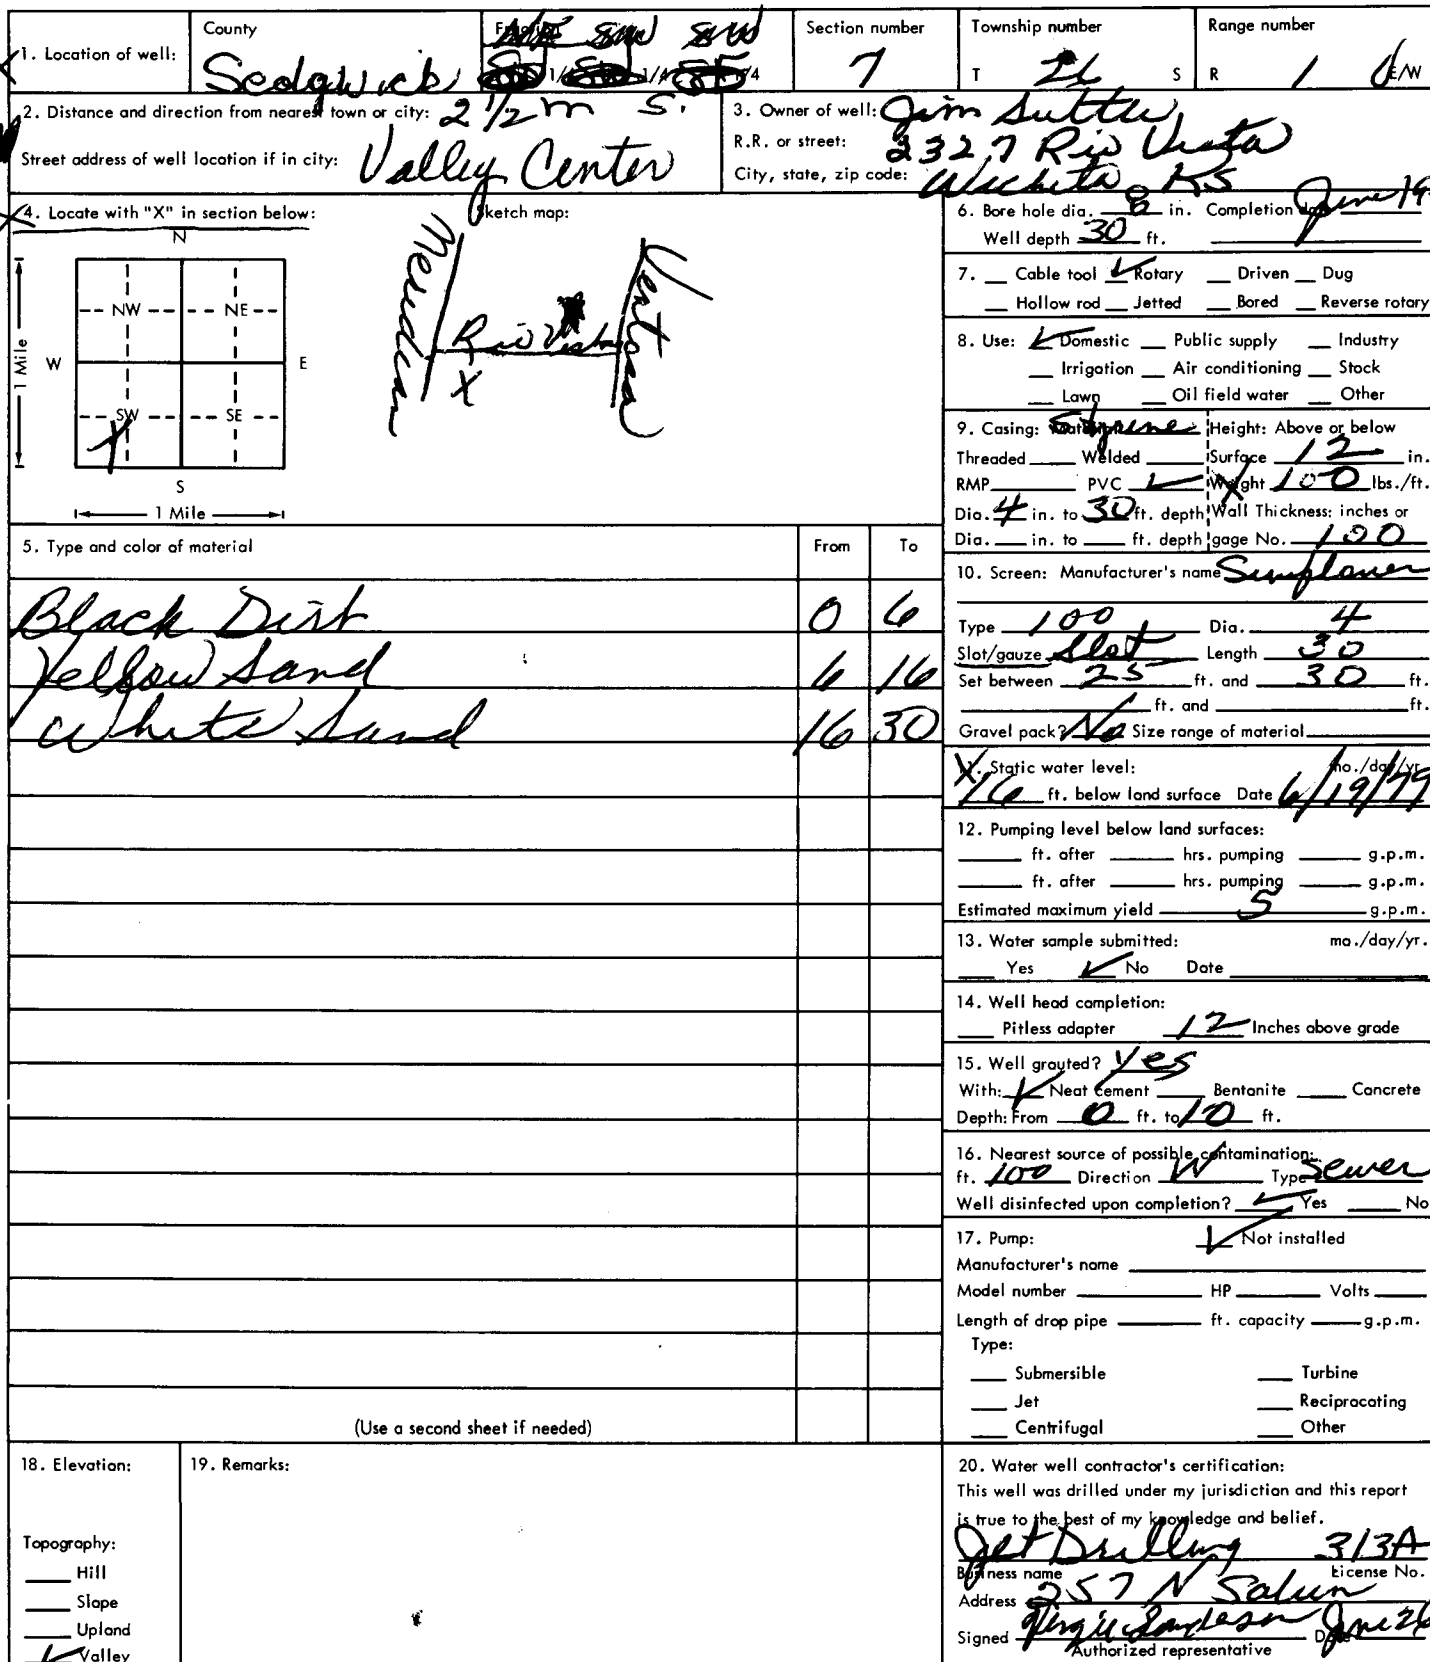 County
Fraction
Section number
Township number
Range number
1. Location of well:
Sedgwick
NE SW SW
1/4 1/4 1/4
7
T 26 S
R 1 E/W
2. Distance and direction from nearest town or city: 2 1/2 m S.
Street address of well location if in city: Valley Center
3. Owner of well: Jim Sutter
R.R. or street: 2327 Rio Vista
City, state, zip code: Wichita, KS
4. Locate with "X" in section below:
Sketch map:
N
NW NE
W E
SW SE
X
S
1 Mile
1 Mile
Meridian
Rio Vista
X
6. Bore hole dia. 8 in. Completion date June 19
Well depth 30 ft.
7. Cable tool ✓ Rotary Driven Dug
Hollow rod Jetted Bored Reverse rotary
8. Use: ✓ Domestic Public supply Industry
Irrigation Air conditioning Stock
Lawn Oil field water Other
9. Casing: Material Styrene Height: Above or below
Threaded Welded Surface 12 in.
RMP PVC ✓ Weight 100 lbs./ft.
Dia. 4 in. to 30 ft. depth Wall Thickness: inches or
Dia. in. to ft. depth gage No. 100
5. Type and color of material From To
Black Dirt 0 6
Yellow Sand 6 16
White Sand 16 30
(Use a second sheet if needed)
10. Screen: Manufacturer's name Sunflower
Type 100 Dia. 4
Slot/gauze Slot Length 30
Set between 25 ft. and 30 ft.
ft. and ft.
Gravel pack? No Size range of material
11. Static water level: mo./day/yr.
16 ft. below land surface Date 6/19/79
12. Pumping level below land surfaces:
ft. after hrs. pumping g.p.m.
ft. after hrs. pumping g.p.m.
Estimated maximum yield 5 g.p.m.
13. Water sample submitted: mo./day/yr.
Yes ✓ No Date
14. Well head completion:
Pitless adapter 12 Inches above grade
15. Well grouted? Yes
With: ✓ Neat cement Bentonite Concrete
Depth: From 0 ft. to 10 ft.
16. Nearest source of possible contamination:
ft. 100 Direction W Type Sewer
Well disinfected upon completion? ✓ Yes No
17. Pump: ✓ Not installed
Manufacturer's name
Model number HP Volts
Length of drop pipe ft. capacity g.p.m.
Type:
Submersible Turbine
Jet Reciprocating
Centrifugal Other
18. Elevation:
Topography:
Hill
Slope
Upland
✓ Valley
19. Remarks:
20. Water well contractor's certification:
This well was drilled under my jurisdiction and this report
is true to the best of my knowledge and belief.
Jet Drilling 313A
Business name License No.
Address 257 N
Signed Date June 26
Authorized representative